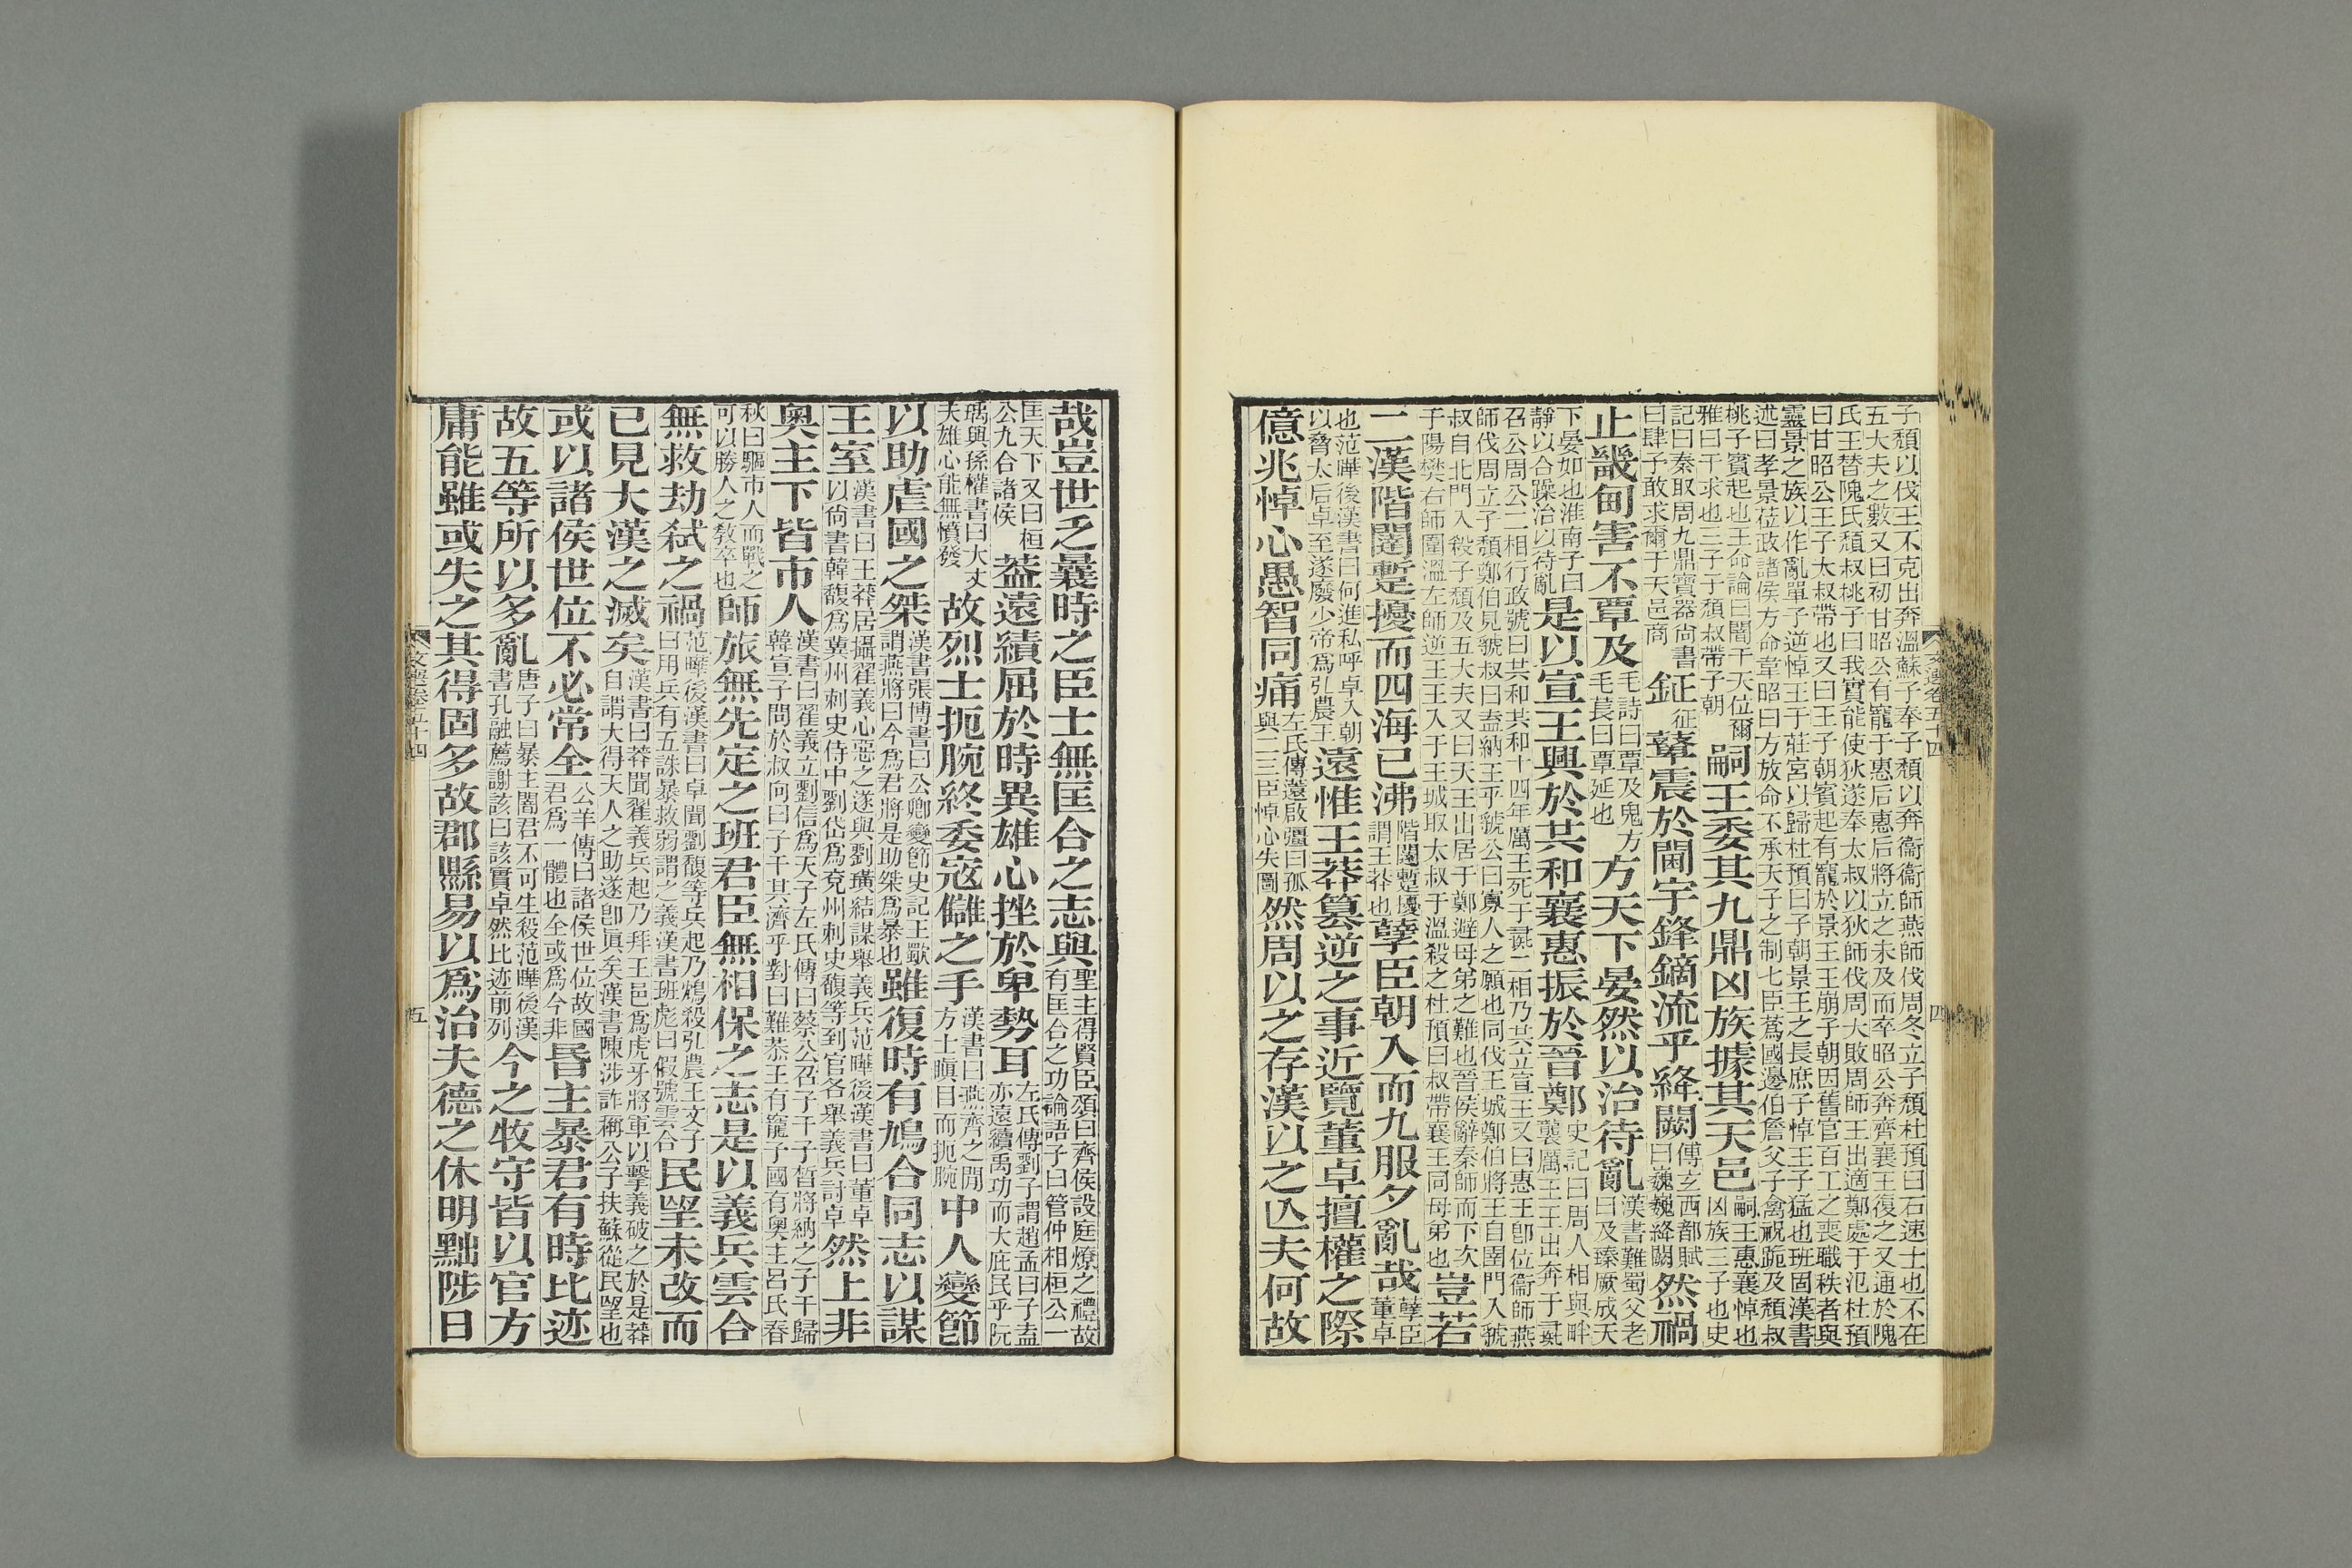 子頹以伐王不克出奔溫蘇子奉子頹以奔衞衞師燕師伐周冬立子頹杜預曰石速士也不在
五大夫之數又曰初甘昭公有寵于惠后惠后將立之未及而卒昭公奔齊襄王復之又通於隗
氏王替隗氏頹叔桃子曰我實能使狄遂奉太叔以狄師伐周大敗周師王出適鄭處于氾杜預
曰甘昭公王子大叔帶也又曰王子朝賓起有寵於景王王崩子朝因舊官百工之喪職秩者與
靈景之族以作亂單子逆悼王于莊宮以歸杜預曰子朝景王之長庶子悼王子猛也班固漢書
述曰孝景莅政諸侯方命韋昭曰方放命不承天子之制七臣蔿國邊伯詹父子禽祝跪及頹叔
桃子賓起也王命論曰闇干天位爾雅曰干求也三子于頹叔帶子朝嗣王委其九鼎凶族據其天邑嗣王惠襄悼也凶族三子也史
記曰秦取周九鼎寶器尙書曰肆予敢求爾于天邑商鉦征鼙震於閫宇鋒鏑流乎絳闕傅玄西都賦曰巍巍絳闕然禍
止畿甸害不覃及毛詩曰覃及鬼方毛萇曰覃延也方天下晏然以治待亂漢書難蜀父老曰及臻厥成天
下晏如也淮南子曰靜以合躁治以待亂是以宣王興於共和襄惠振於晉鄭史記曰周人相與畔襲厲王王出奔于彘
召公周公二相行政號曰共和共和十四年厲王死于彘二相乃共立宣王又曰惠王卽位衞師燕
師伐周立子頹鄭伯見虢叔曰盍納王乎虢公曰寡人之願也同伐王城鄭伯將王自圉門入虢
叔自北門入殺子頹及五大夫又曰天王出居于鄭避母弟之難也晉侯辭秦師而下次于陽樊右師圍溫左師逆王王入于王城取太叔于溫殺之杜預曰叔帶襄王同母弟也豈若
二漢階闥蹔擾而四海已沸階闥蹔擾謂王莽也孽臣朝入而九服夕亂哉孽臣董卓
也范曄後漢書曰何進私呼卓入朝以脅太后卓至遂廢少帝爲弘農王遠惟王莽篡逆之事近覽董卓擅權之際
億兆悼心愚智同痛左氏傳薳啟彊曰孤與二三臣悼心失圖然周以之存漢以之亾夫何故
文選卷五十四
四
哉豈世乏曩時之臣士無匡合之志與聖主得賢臣頌曰齊侯設庭燎之禮故有匡合之功論語子曰管仲相桓公一
匡天下又曰桓公九合諸侯葢遠績屈於時異雄心挫於卑勢耳左氏傳劉子謂趙孟曰子盍亦遠續禹功而大庇民乎阮
瑀與孫權書曰大丈夫雄心能無憤發故烈士扼腕終委寇讎之手漢書曰燕齊之閒方士瞋目而扼腕中人變節
以助虐國之桀漢書張博書曰公卿變節史記王歜謂燕將曰今爲君將是助桀爲暴也雖復時有鳩合同志以謀
王室漢書曰王莽居攝翟義心惡之遂與劉璜結謀舉義兵范曄後漢書曰董卓以尙書韓馥爲冀州刺史侍中劉岱爲兗州刺史馥等到官各舉義兵討卓然上非
奧主下皆市人漢書曰翟義立劉信爲天子左氏傳曰蔡公召子干子晳將納之子干歸韓宣子問於叔向曰子干其濟乎對曰難恭王有寵子國有奧主呂氏春
秋曰驅市人而戰之可以勝人之敎卒也師旅無先定之班君臣無相保之志是以義兵雲合
無救劫弒之禍范曄後漢書曰卓聞劉馥等兵起乃鴆殺弘農王文子曰用兵有五誅暴救弱謂之義漢書班彪曰假號雲合民望未改而
已見大漢之滅矣漢書曰莽聞翟義兵起乃拜王邑爲虎牙將軍以擊義破之於是莽自謂大得天人之助遂卽眞矣漢書陳涉詐稱公子扶蘇從民望也
或以諸侯世位不必常全公羊傳曰諸侯世位故國君爲一體也全或爲今非昏主暴君有時比迹
故五等所以多亂唐子曰暴主闇君不可生殺范曄後漢書孔融薦謝該曰該實卓然比迹前列今之牧守皆以官方
庸能雖或失之其得固多故郡縣易以爲治夫德之休明黜陟日
文選卷五十四
五